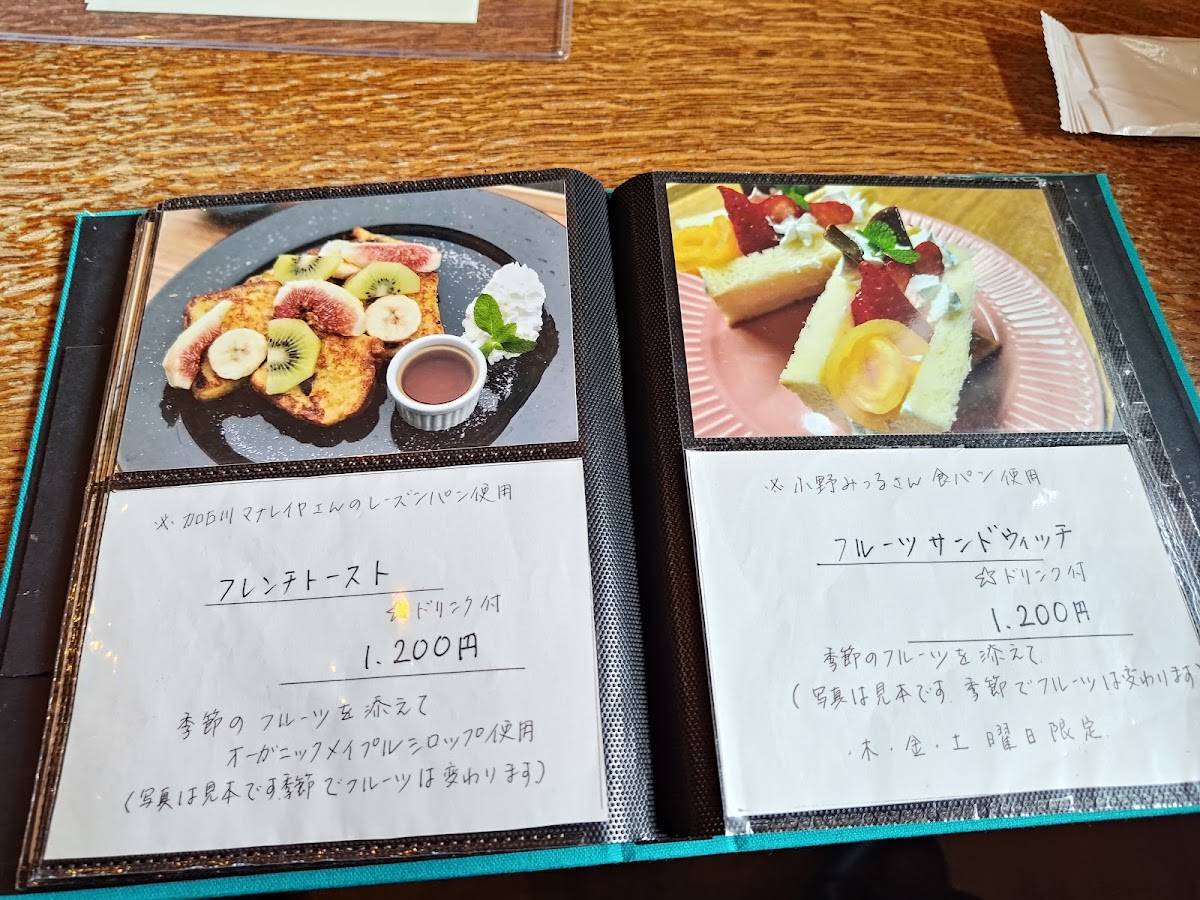 ※ 加古川 マナレイヤさんのレーズンパン使用
フレンチトースト
☆ドリンク付
1.200円
季節の フルーツを添えて
オーガニックメイプルシロップ使用
(写真は見本です.季節でフルーツは変わります)
※ 小野みつるさん 食パン使用
フルーツ サンドウィッチ
☆ドリンク付
1.200円
季節のフルーツを添えて
(写真は見本です.季節でフルーツは変わります
・木・金・土 曜日限定